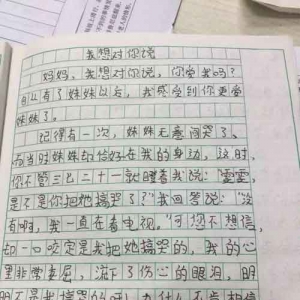 我想对你说
妈妈,我想对你说,你爱我吗?
自从有了妹妹以后,我感觉到你更爱
妹妹了。
记得有一次,妹妹无意间哭了,
而当时妹妹却恰好在我的身边,这时,
你不管三七二十一就瞪着我说:“雯雯,
是不是你把她搞哭了?”我回答说:“没
有啊,我一直在看电视。”可您不想信,
却一口咬定是我把她搞哭的,我的心
里非常委屈,流下了伤心的眼泪,明
明不是我搞哭的呀!为什么不肯相信